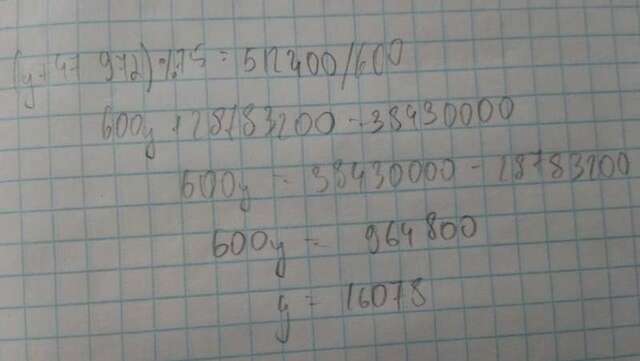 (y+47 972)%75 = 512400/600
600y + 28783200 = 38430000
600y = 38430000 - 28783200
600y = 964800
y = 16078